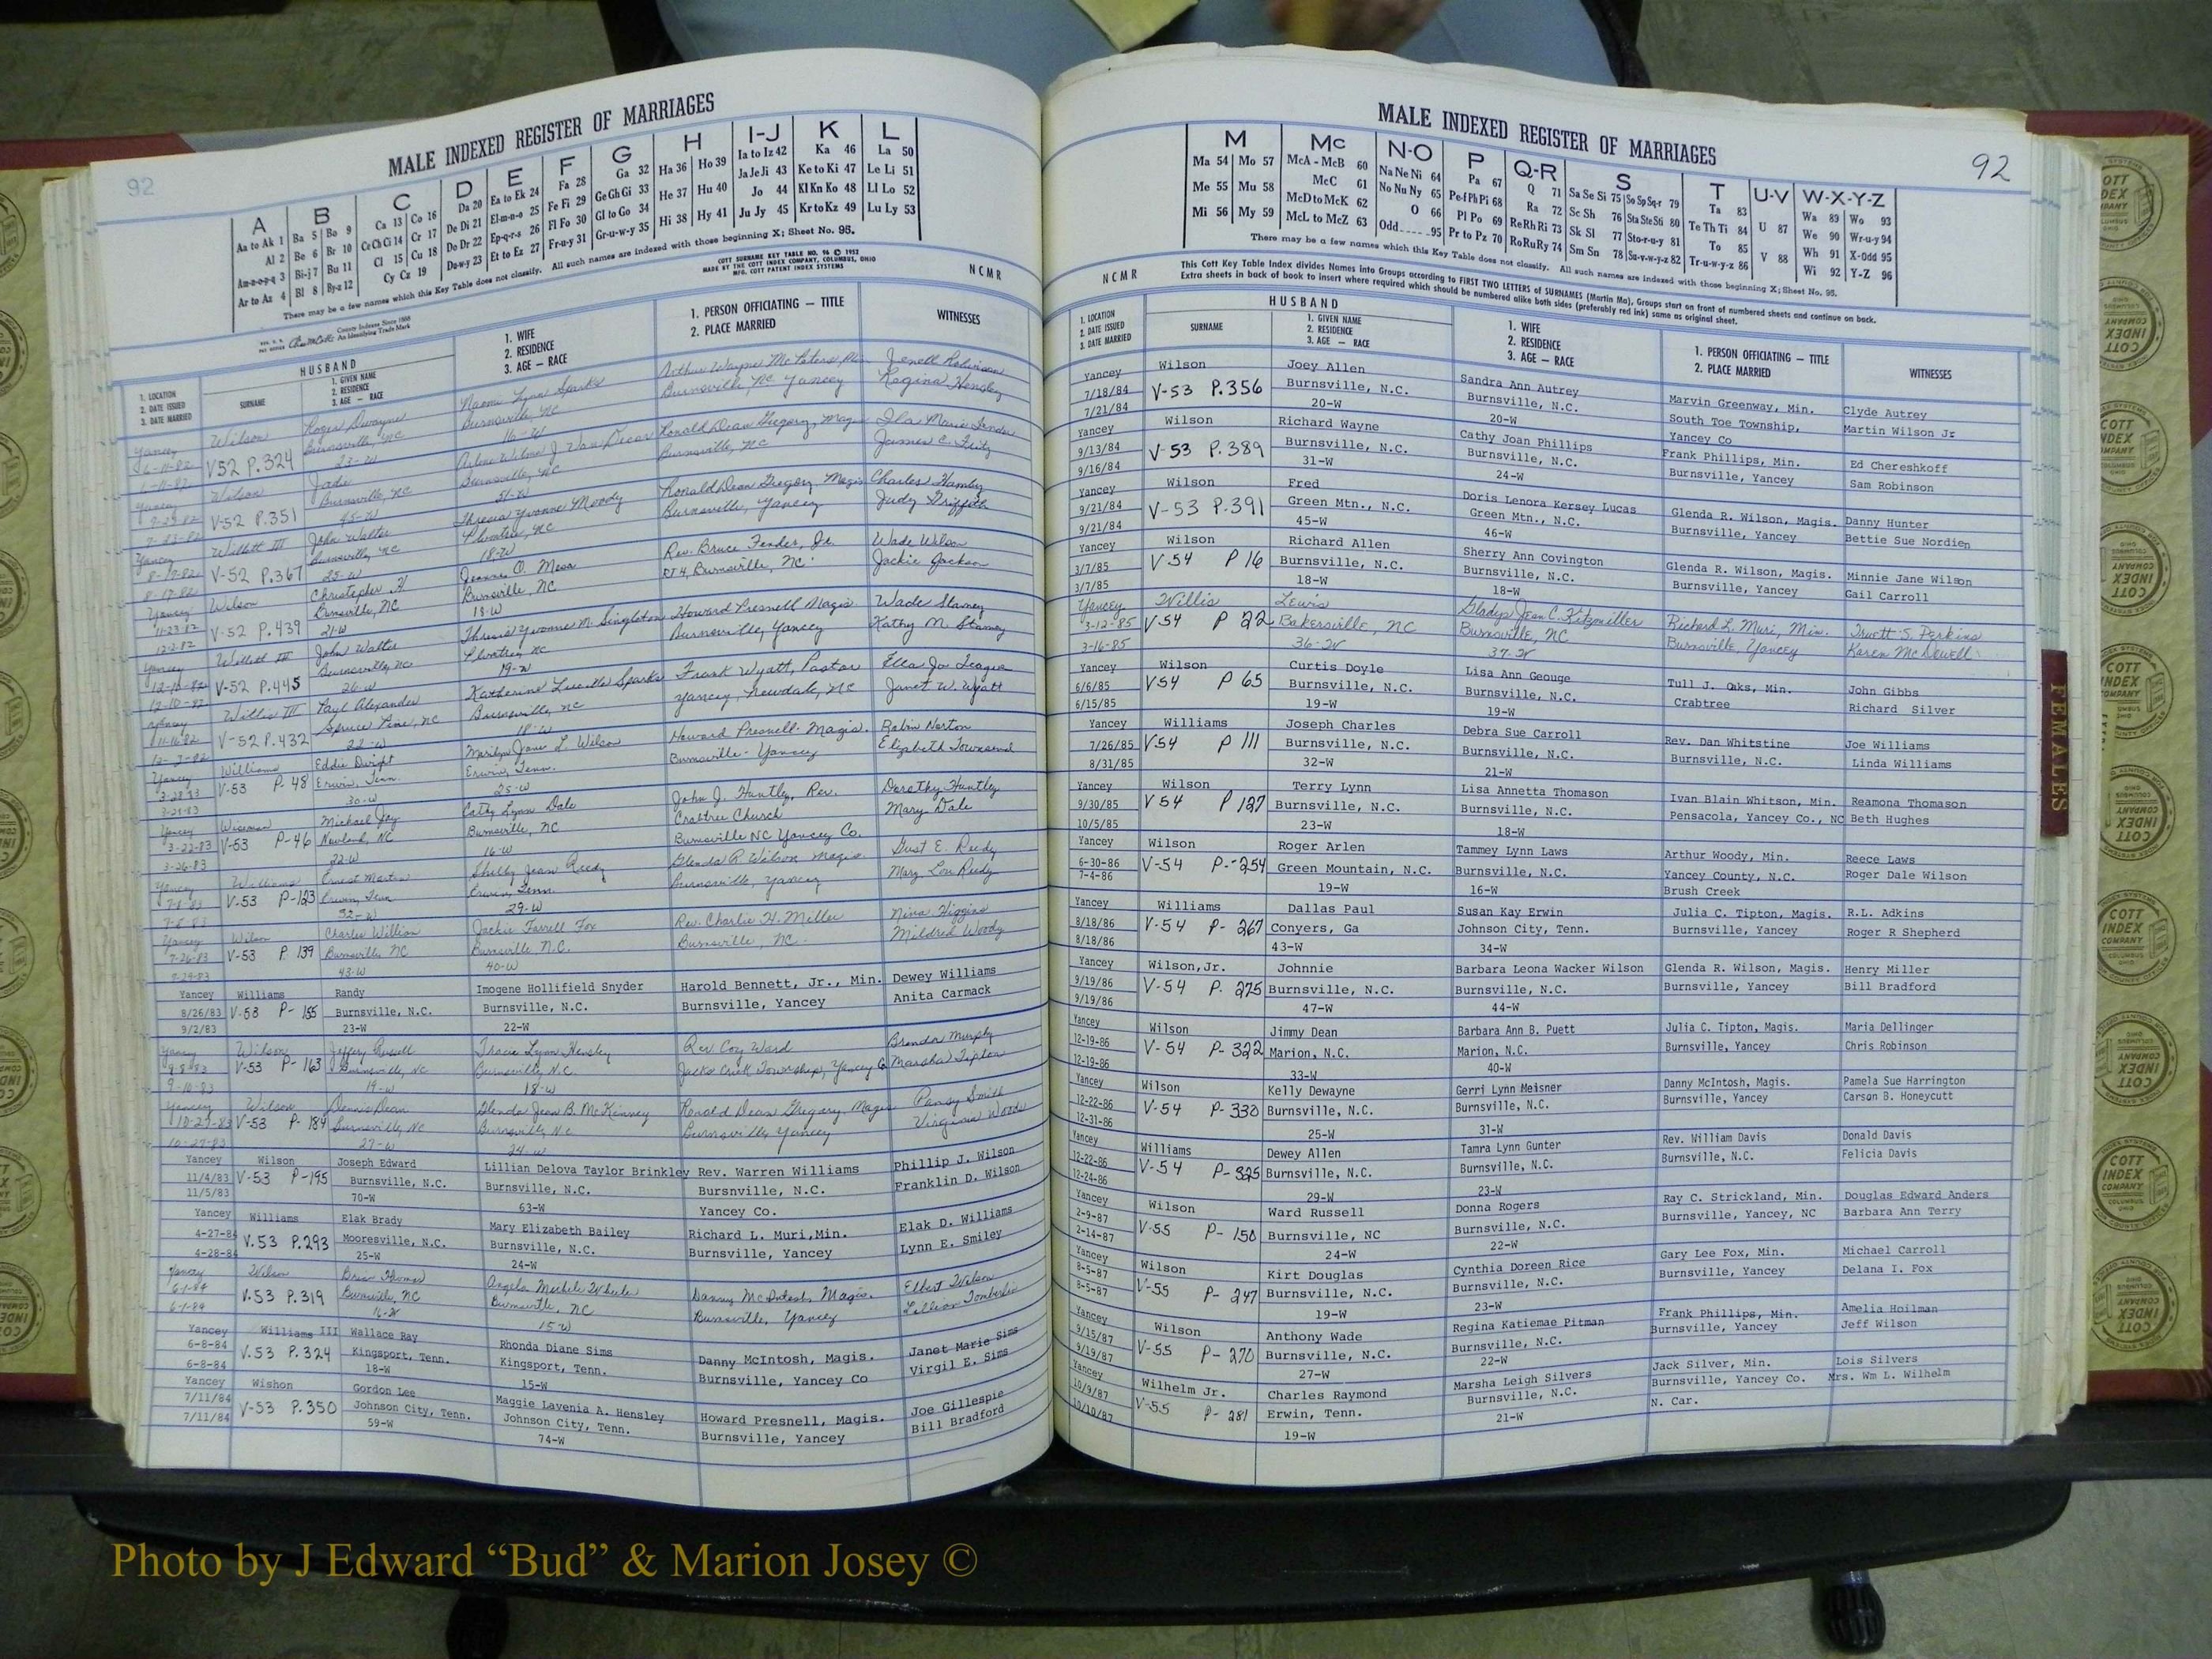 92
MALE INDEXED REGISTER OF MARRIAGES
A B C D E F G H I-J K L
Aa to Ak 1 Ba 5 Bo 9 Ca 13 Co 16 Da 20 Ea to Ek 24 Fa 28 Ga 32 Ha 36 Ho 39 Ia to Iz 42 Ka 46 La 50
Al 2 Be 6 Br 10 Ce Ch Ci 14 Cr 17 De Di 21 El-m-n-o 25 Fe Fi 29 Ge Gh Gi 33 He 37 Hu 40 Ja Je Ji 43 Ke to Ki 47 Le Li 51
Am-n-o-p-q 3 Bi-j 7 Bu 11 Cl 15 Cu 18 Do Dr 22 Ep-q-r-s 26 Fl Fo 30 Gl to Go 34 Hi 38 Hy 41 Jo 44 Kl Kn Ko 48 Ll Lo 52
Ar to Az 4 Bl 8 By-z 12 Cy Cz 19 Du-w-y 23 Et to Ez 27 Fr-u-y 31 Gr-u-w-y 35 Ju Jy 45 Kr to Kz 49 Lu Ly 53
There may be a few names which this Key Table does not classify. All such names are indexed with those beginning X; Sheet No. 95.
County Indexes Since 1888
An Identifying Trade Mark
COTT SURNAME KEY TABLE NO. 96 © 1952
MADE BY THE COTT INDEX COMPANY, COLUMBUS, OHIO
MFG. COTT PATENT INDEX SYSTEMS
NCMR
1. LOCATION
2. DATE ISSUED
3. DATE MARRIED
HUSBAND
SURNAME
1. GIVEN NAME
2. RESIDENCE
3. AGE — RACE
1. WIFE
2. RESIDENCE
3. AGE — RACE
1. PERSON OFFICIATING — TITLE
2. PLACE MARRIED
WITNESSES
Yancey Wilson Roger Dwayne Naomi Lynn Sparks Arthur Wayne McPeters Jenell Robinson
6-11-82 V52 P.324 Burnsville, NC Burnsville NC Burnsville NC Yancey Regina Hensley
23-W 16-W
Yancey Wilson Jade Arlene Wilma J Van Ronald Dean Gregory, Magis Ila Marie
V-52 P.351 Burnsville, NC Burnsville, NC Burnsville, NC James C.
45-W 51-W
Yancey Willett III John Walter Thresia Yvonne Moody Ronald Dean Gregory Magis Charles Hamby
8-17-82 V-52 P.367 Burnsville, NC Plumtree, NC Burnsville, Yancey Judy Griffith
8-17-82 25-W 18-W
Yancey Wilson Christopher H. Jeanne O. Mesa Rev. Bruce Fender, Jr. Wade Wilson
11-23-82 V-52 P.439 Burnsville, NC Burnsville NC Rt 4, Burnsville, NC Jackie Jackson
12-2-82 21-W 18-W
Yancey Willett III John Walter Thresia Yvonne M. Singleton Howard Presnell Magis. Wade Stamey
12-10-82 V-52 P.445 Burnsville, NC Plumtree, NC Burnsville, Yancey Kathy M. Stamey
12-10-82 26-W 19-W
Yancey Willis III Paul Alexander Katherine Lucille Sparks Frank Wyatt, Pastor Ella Jo League
11-16-82 V-52 P.432 Spruce Pine, NC Burnsville, NC Yancey, Newdale, NC Janet W. Wyatt
22-W 18-W
Yancey Williams Eddie Dwight Marilyn Janes L. Wilson Howard Presnell-Magis. Robin Norton
3-28-83 V-53 P-48 Erwin, Tenn. Erwin, Tenn. Burnsville-Yancey Elizabeth Townsend
30-W 25-W
Yancey Wiseman Michael Jay Cathy Lynn Dale John J. Huntley, Rev. Dorothy Huntley
3-22-83 V-53 P-46 Newland, NC Burnsville, NC Crabtree Church Mary Dale
3-26-83 22-W 16-W Burnsville NC Yancey Co.
Yancey Williams Ernest Martin Shelby Jean Reedy Glenda R Wilson Magis. Gust E. Reedy
7-8-83 V-53 P-123 Erwin, Tenn Erwin, Tenn. Burnsville, Yancey Mary Lou Reedy
7-8-83 32-W 29-W
Yancey Wilson Charles William Jackie Farrell Fox Rev. Charlie H. Miller Nina Higgins
7-26-83 V-53 P 139 Burnsville, NC Burnsville N.C. Burnsville, NC. Mildred Woody
7-29-83 43-W 40-W
Yancey Williams Randy Imogene Hollifield Snyder Harold Bennett, Jr., Min. Dewey Williams
8/26/83 V-53 P-155 Burnsville, N.C. Burnsville, N.C. Burnsville, Yancey Anita Carmack
9/2/83 23-W 22-W
Yancey Wilson Jeffery Russell Tracie Lynn Hensley Rev Coy Ward Brenda Murphy
9-8-83 V-53 P-163 Burnsville, NC Burnsville, N.C. Jacks Creek Township, Yancey Co Marsha Tipton
9-10-83 19-W 18-W
Yancey Wilson Dennis Dean Glenda Jean B. McKinney Ronald Dean Gregory, Magis Pansy Smith
10-27-83 V-53 P-184 Burnsville, NC Burnsville, N.C. Burnsville, Yancey Virginia Woods
10-27-83 27-W 24-W
Yancey Wilson Joseph Edward Lillian Delova Taylor Brinkley Rev. Warren Williams Phillip J. Wilson
11/4/83 V-53 P-195 Burnsville, N.C. Burnsville, N.C. Bursnville, N.C. Franklin D. Wilson
11/5/83 70-W 63-W Yancey Co.
Yancey Williams Elak Brady Mary Elizabeth Bailey Richard L. Muri,Min. Elak D. Williams
4-27-84 V.53 P.293 Mooresville, N.C. Burnsville, N.C. Burnsville, Yancey Lynn E. Smiley
4-28-84 25-W 24-W
Yancey Wilson Brian Thomas Angela Michele Wheeler Danny McIntosh, Magis. Elbert Wilson
6-1-84 V.53 P.319 Burnsville, NC Burnsville, NC Burnsville, Yancey Lillian Tomberlin
6-1-84 16-W 15-W
Yancey Williams III Wallace Ray Rhonda Diane Sims Danny McIntosh, Magis. Janet Marie Sims
6-8-84 V.53 P.324 Kingsport, Tenn. Kingsport, Tenn. Burnsville, Yancey Co Virgil E. Sims
6-8-84 18-W 15-W
Yancey Wishon Gordon Lee Maggie Lavenia A. Hensley Howard Presnell, Magis. Joe Gillespie
7/11/84 V-53 P.350 Johnson City, Tenn. Johnson City, Tenn. Burnsville, Yancey Bill Bradford
7/11/84 59-W 74-W
MALE INDEXED REGISTER OF MARRIAGES
92
M Mc N-O P Q-R S T U-V W-X-Y-Z
Ma 54 Mo 57 McA - McB 60 Na Ne Ni 64 Pa 67 Q 71 Sa Se Si 75 So Sp Sq-r 79 Ta 83 U 87 Wa 89 Wo 93
Me 55 Mu 58 McC 61 No Nu Ny 65 Pe-f Ph Pi 68 Ra 72 Sc Sh 76 Sta Ste Sti 80 Te Th Ti 84 V 88 We 90 Wr-u-y 94
Mi 56 My 59 McD to McK 62 O 66 Pl Po 69 Re Rh Ri 73 Sk Sl 77 Sto-r-u-y 81 To 85 Wh 91 X-Odd 95
McL to McZ 63 Odd 95 Pr to Pz 70 Ro Ru Ry 74 Sm Sn 78 Su-v-w-y-z 82 Tr-u-w-y-z 86 Wi 92 Y-Z 96
There may be a few names which this Key Table does not classify. All such names are indexed with those beginning X; Sheet No. 95.
NCMR
This Cott Key Table Index divides Names into Groups according to FIRST TWO LETTERS of SURNAMES (Martin Ma), Groups start on front of numbered sheets and continue on back.
Extra sheets in back of book to insert where required which should be numbered alike both sides (preferably red ink) same as original sheet.
1. LOCATION
2. DATE ISSUED
3. DATE MARRIED
HUSBAND
SURNAME
1. GIVEN NAME
2. RESIDENCE
3. AGE — RACE
1. WIFE
2. RESIDENCE
3. AGE — RACE
1. PERSON OFFICIATING — TITLE
2. PLACE MARRIED
WITNESSES
Yancey Wilson Joey Allen Sandra Ann Autrey Marvin Greenway, Min. Clyde Autrey
7/18/84 V-53 P.356 Burnsville, N.C. Burnsville, N.C. South Toe Township, Martin Wilson Jr
7/21/84 20-W 20-W Yancey Co
Yancey Wilson Richard Wayne Cathy Joan Phillips Frank Phillips, Min. Ed Chereshkoff
9/13/84 V-53 P.389 Burnsville, N.C. Burnsville, N.C. Burnsville, Yancey Sam Robinson
9/16/84 31-W 24-W
Yancey Wilson Fred Doris Lenora Kersey Lucas Glenda R. Wilson, Magis. Danny Hunter
9/21/84 V-53 P.391 Green Mtn., N.C. Green Mtn., N.C. Burnsville, Yancey Bettie Sue Nordien
9/21/84 45-W 46-W
Yancey Wilson Richard Allen Sherry Ann Covington Glenda R. Wilson, Magis. Minnie Jane Wilson
3/7/85 V54 P 16 Burnsville, N.C. Burnsville, N.C. Burnsville, Yancey Gail Carroll
3/7/85 18-W 18-W
Yancey Willis Lewis Gladys Jean C. Kitzmiller Richard L. Muri, Min. Truett S. Perkins
3-12-85 V54 P 22 Bakersville, NC Burnsville, NC Burnsville, Yancey Karen McDowell
3-16-85 36-W 37-W
Yancey Wilson Curtis Doyle Lisa Ann Geouge Tull J. Oaks, Min. John Gibbs
6/6/85 V54 P 65 Burnsville, N.C. Burnsville, N.C. Crabtree Richard Silver
6/15/85 19-W 19-W
Yancey Williams Joseph Charles Debra Sue Carroll Rev. Dan Whitstine Joe Williams
7/26/85 V54 P 111 Burnsville, N.C. Burnsville, N.C. Burnsville, N.C. Linda Williams
8/31/85 32-W 21-W
Yancey Wilson Terry Lynn Lisa Annetta Thomason Ivan Blain Whitson, Min. Reamona Thomason
9/30/85 V54 P 127 Burnsville, N.C. Burnsville, N.C. Pensacola, Yancey Co., NC Beth Hughes
10/5/85 23-W 18-W
Yancey Wilson Roger Arlen Tammey Lynn Laws Arthur Woody, Min. Reece Laws
6-30-86 V-54 P-254 Green Mountain, N.C. Burnsville, N.C. Yancey County, N.C. Roger Dale Wilson
7-4-86 19-W 16-W Brush Creek
Yancey Williams Dallas Paul Susan Kay Erwin Julia C. Tipton, Magis. R.L. Adkins
8/18/86 V-54 P-267 Conyers, Ga Johnson City, Tenn. Burnsville, Yancey Roger R Shepherd
8/18/86 43-W 34-W
Yancey Wilson,Jr. Johnnie Barbara Leona Wacker Wilson Glenda R. Wilson, Magis. Henry Miller
9/19/86 V-54 P. 275 Burnsville, N.C. Burnsville, N.C. Burnsville, Yancey Bill Bradford
9/19/86 47-W 44-W
Yancey Wilson Jimmy Dean Barbara Ann B. Puett Julia C. Tipton, Magis. Maria Dellinger
12-19-86 V-54 P-322 Marion, N.C. Marion, N.C. Burnsville, Yancey Chris Robinson
12-19-86 33-W 40-W
Yancey Wilson Kelly Dewayne Gerri Lynn Meisner Danny McIntosh, Magis. Pamela Sue Harrington
12-22-86 V-54 P-330 Burnsville, N.C. Burnsville, N.C. Burnsville, Yancey Carson B. Honeycutt
12-31-86 25-W 31-W
Yancey Williams Dewey Allen Tamra Lynn Gunter Rev. William Davis Donald Davis
12-22-86 V-54 P-325 Burnsville, N.C. Burnsville, N.C. Burnsville, N.C. Felicia Davis
12-24-86 29-W 23-W
Yancey Wilson Ward Russell Donna Rogers Ray C. Strickland, Min. Douglas Edward Anders
2-9-87 V-55 P-150 Burnsville, NC Burnsville, N.C. Burnsville, Yancey, NC Barbara Ann Terry
2-14-87 24-W 22-W
Yancey Wilson Kirt Douglas Cynthia Doreen Rice Gary Lee Fox, Min. Michael Carroll
8-5-87 V-55 P-247 Burnsville, N.C. Burnsville, N.C. Burnsville, Yancey Delana I. Fox
8-5-87 19-W 23-W
Yancey Wilson Anthony Wade Regina Katiemae Pitman Frank Phillips, Min. Amelia Hoilman
9/15/87 V-55 P-270 Burnsville, N.C. Burnsville, N.C. Burnsville, Yancey Jeff Wilson
9/19/87 27-W 22-W
Yancey Wilhelm Jr. Charles Raymond Marsha Leigh Silvers Jack Silver, Min. Lois Silvers
10/9/87 V-55 P-281 Erwin, Tenn. Burnsville, N.C. Burnsville, Yancey Co. Mrs. Wm L. Wilhelm
10/10/87 19-W 21-W N. Car.
FEMALES
COTT
INDEX
COMPANY
COLUMBUS
OHIO
Photo by J Edward “Bud” & Marion Josey ©